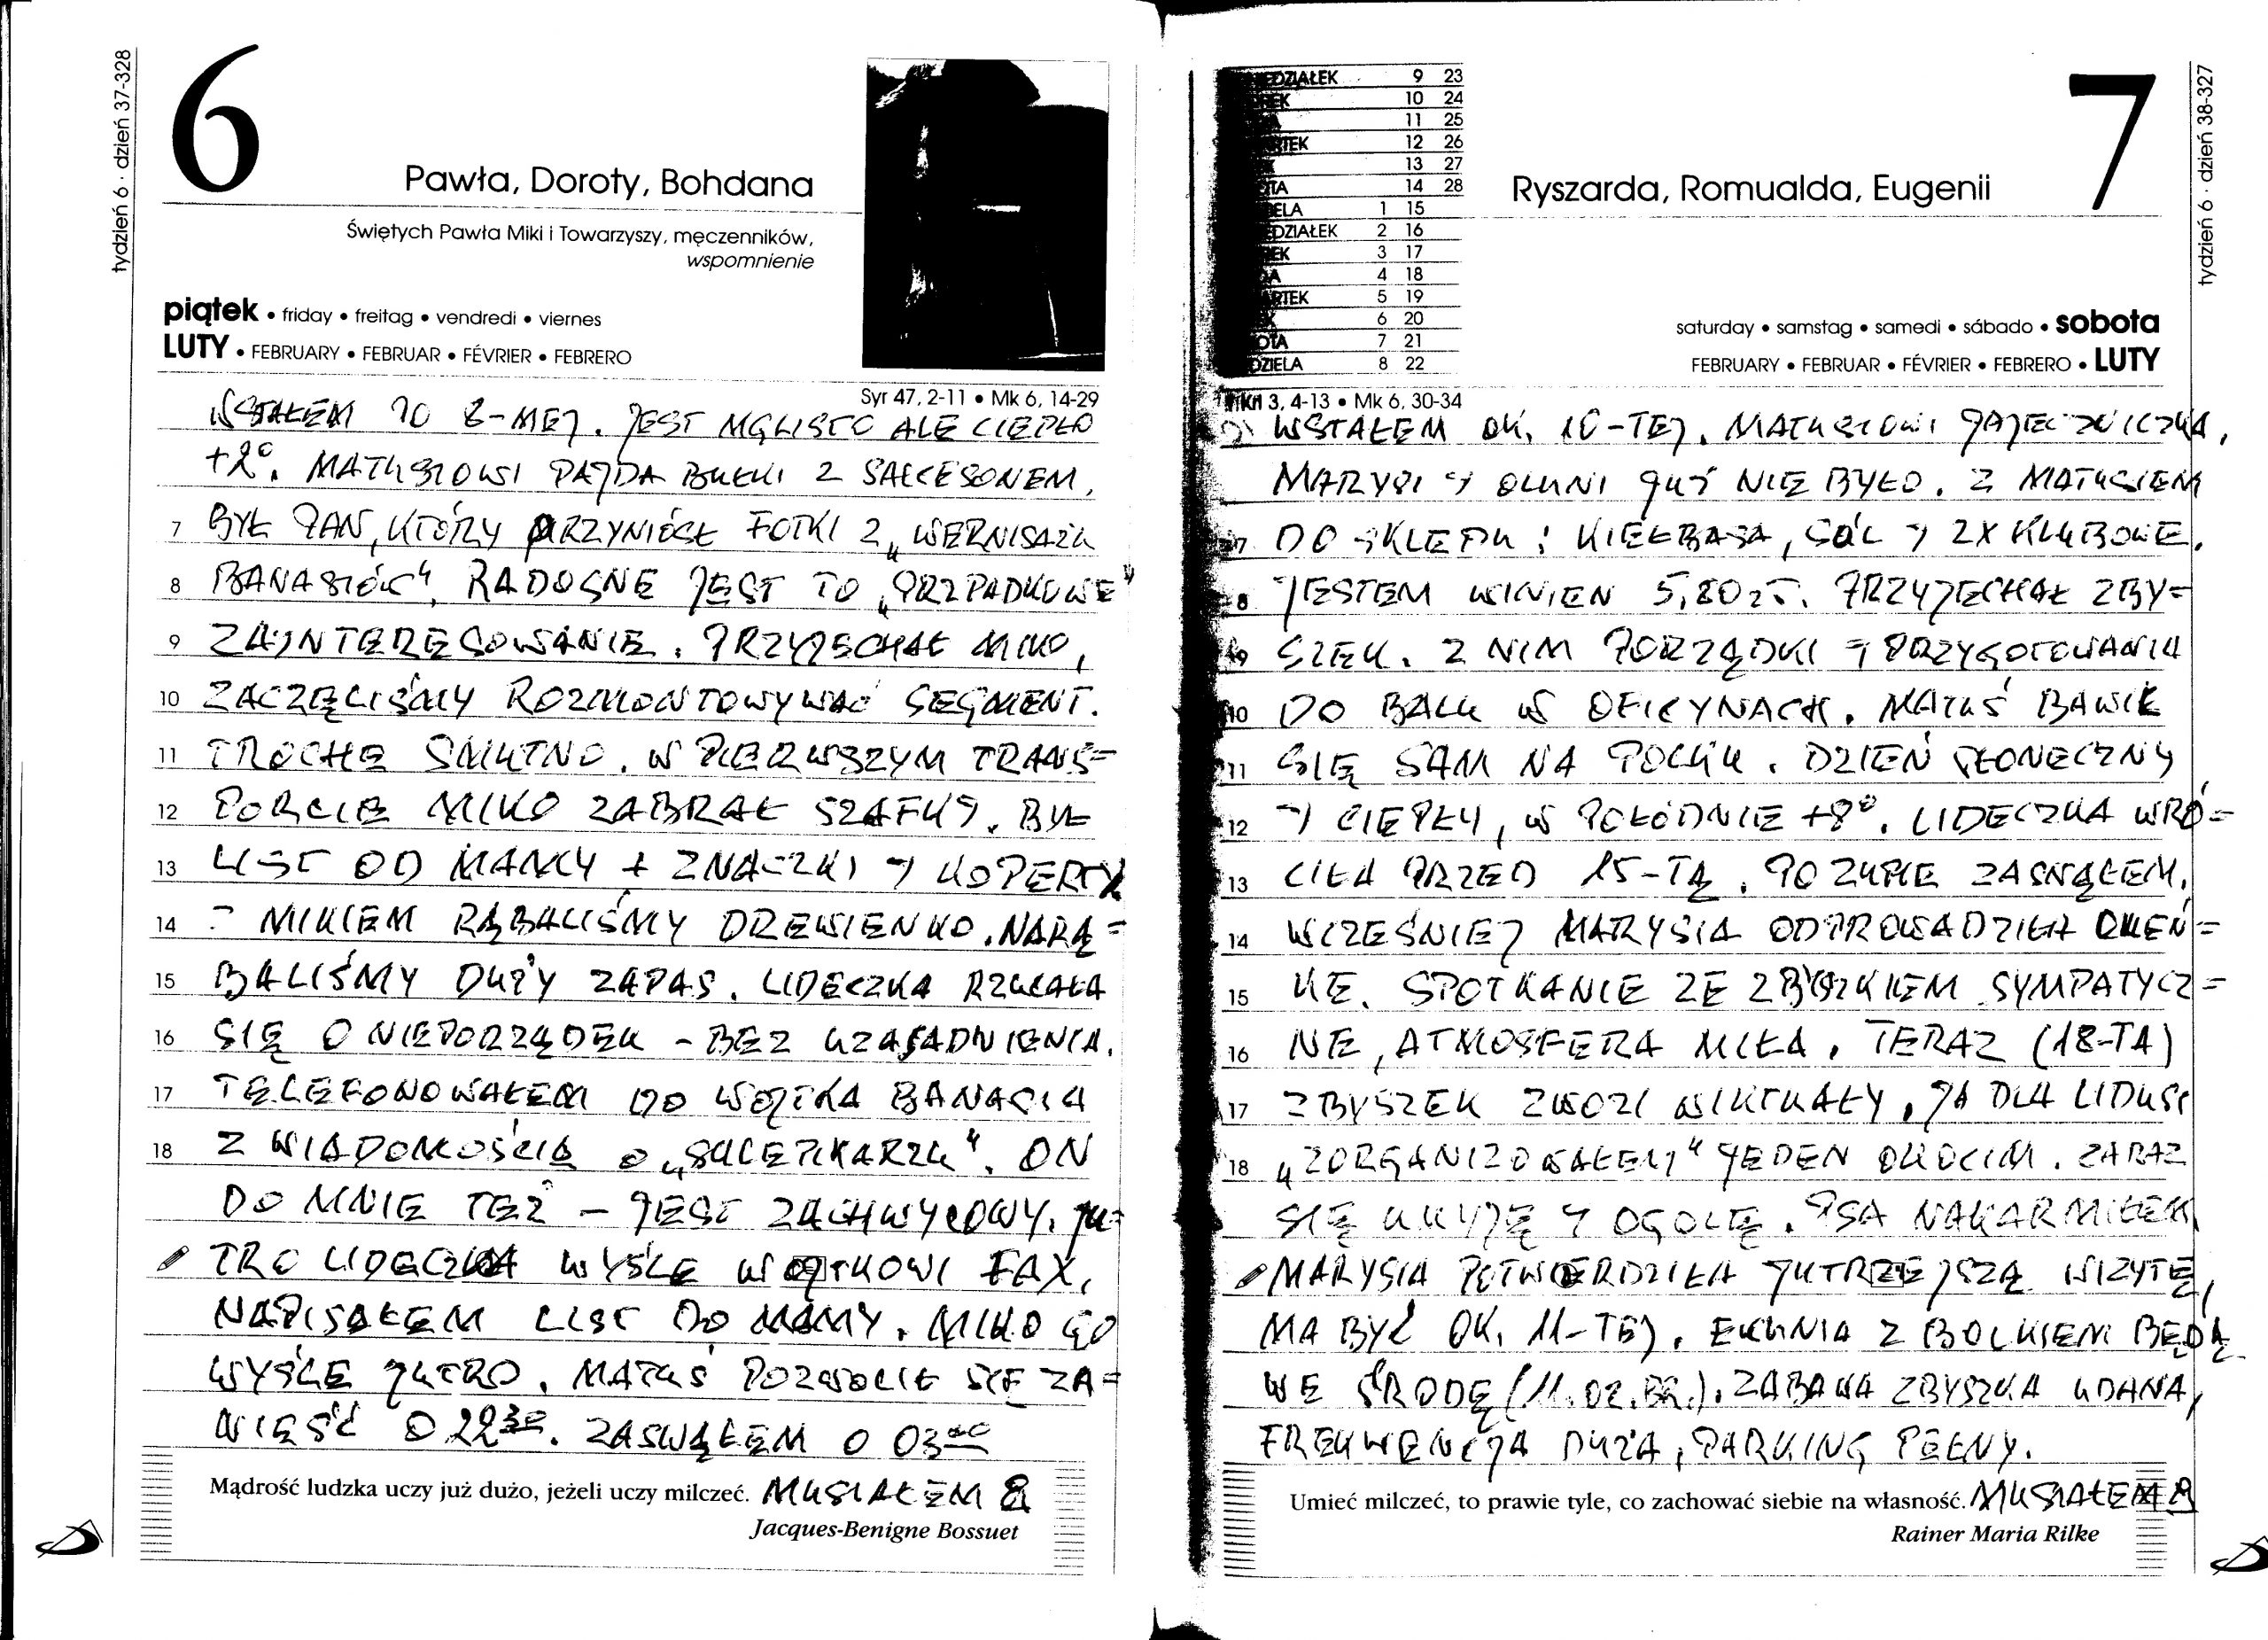 tydzień 6 · dzień 37-328
6
Pawła, Doroty, Bohdana
Świętych Pawła Miki i Towarzyszy, męczenników,
wspomnienie
piątek • friday • freitag • vendredi • viernes
LUTY • FEBRUARY • FEBRUAR • FÉVRIER • FEBRERO
Syr 47, 2-11 • Mk 6, 14-29
WSTAŁEM PO 8-MEJ. JEST MGLISTO ALE CIEPŁO
+2°. MATUSIOWI PAJDA BUŁKI Z SALCESONEM.
7 BYŁ PAN, KTÓRY PRZYNIÓSŁ FOTKI Z „WERNISAŻU
8 BANASIÓW". RADOSNE JEST TO „PRZPADKOWE"
9 ZAINTERESOWANIE. PRZYJECHAŁ MIKO,
10 ZACZĘLIŚMY ROZMONTOWYWAĆ SEGMENT.
11 TROCHĘ SMUTNO. W PIERWSZYM TRANS=
12 PORCIE MIKO ZABRAŁ SZAFKĘ. BYŁ
13 LIST OD MAMY + ZNACZKI I KOPERTY
14 Z MIKIEM RĄBALIŚMY DREWIENKO. NARĄ=
15 BALIŚMY DUŻY ZAPAS. LIDECZKA RZUCAŁA
16 SIĘ O NIEPORZĄDEK - BEZ UZASADNIENIA.
17 TELEFONOWAŁEM DO WOJTKA BANASIA
18 Z WIADOMOŚCIĄ O „SUCEPIKARZU". ON
DO MNIE TEŻ - JEST ZACHWYCOWY. JU=
TRO LIDECZKA WYŚLE WOJTKOWI FAX.
NAPISAŁEM LIST DO MAMY. MIKO GO
WYŚLE JUTRO. MATUŚ POZWOLIŁ SIĘ ZA=
NIEŚĆ O 22 30. ZASNĄŁEM O 03 00
Mądrość ludzka uczy już dużo, jeżeli uczy milczeć. MUSIAŁEM
Jacques-Benigne Bossuet
DZIAŁEK 9 23
10 24
11 25
12 26
13 27
14 28
1 15
DZIAŁEK 2 16
3 17
4 18
5 19
6 20
7 21
8 22
Ryszarda, Romualda, Eugenii
7
tydzień 6 · dzień 38-327
saturday • samstag • samedi • sábado • sobota
FEBRUARY • FEBRUAR • FÉVRIER • FEBRERO • LUTY
3, 4-13 • Mk 6, 30-34
WSTAŁEM OK. 10-TEJ. MATUSIOWI JAJECZNICZKA,
MARYSI I OLUNI JUŻ NIE BYŁO. Z MATUSIEM
7 DO SKLEPU: KIEŁBASA, SÓL I 2X KLUBOWE.
8 JESTEM WINIEN 5,80 ZŁ. PRZYJECHAŁ ZBY=
9 SZEK. Z NIM PORZĄDKI I PRZYGOTOWANIA
10 DO BALU W OFICYNACH. MATUŚ BAWIŁ
11 SIĘ SAM NA POLKU. DZIEŃ SŁONECZNY
12 I CIEPŁY, W POŁÓDNIE +8°. LIDECZKA WRÓ=
13 CIŁA PRZED 15-TĄ. PO ZUPIE ZASNĄŁEM.
14 WCZEŚNIEJ MARYSIA ODPROWADZIŁA OLEŃ=
15 KE. SPOTKANIE ZE ZBYSZKIEM SYMPATYCZ=
16 NE, ATMOSFERA MIŁA. TERAZ (18-TA)
17 ZBYSZEK ZWOZI WIKTUAŁY, JA DLA LIDUSI
18 „ZORGANIZOWAŁEM" JEDEN OKOCIM. ZARAZ
SIĘ UMYJĘ I OGOLĘ. PSA NAKARMIŁEM.
MARYSIA POTWIERDZIŁA JUTRZEJSZĄ WIZYTĘ,
MA BYĆ OK. 11-TEJ. EWUNIA Z BOLKIEM BĘDĄ
WE ŚRODĘ (11.02.BR.). ZABAWA ZBYSZKA UDANA,
FREKWENCJA DUŻA, PARKING PEŁNY.
Umieć milczeć, to prawie tyle, co zachować siebie na własność. MUSIAŁEM
Rainer Maria Rilke